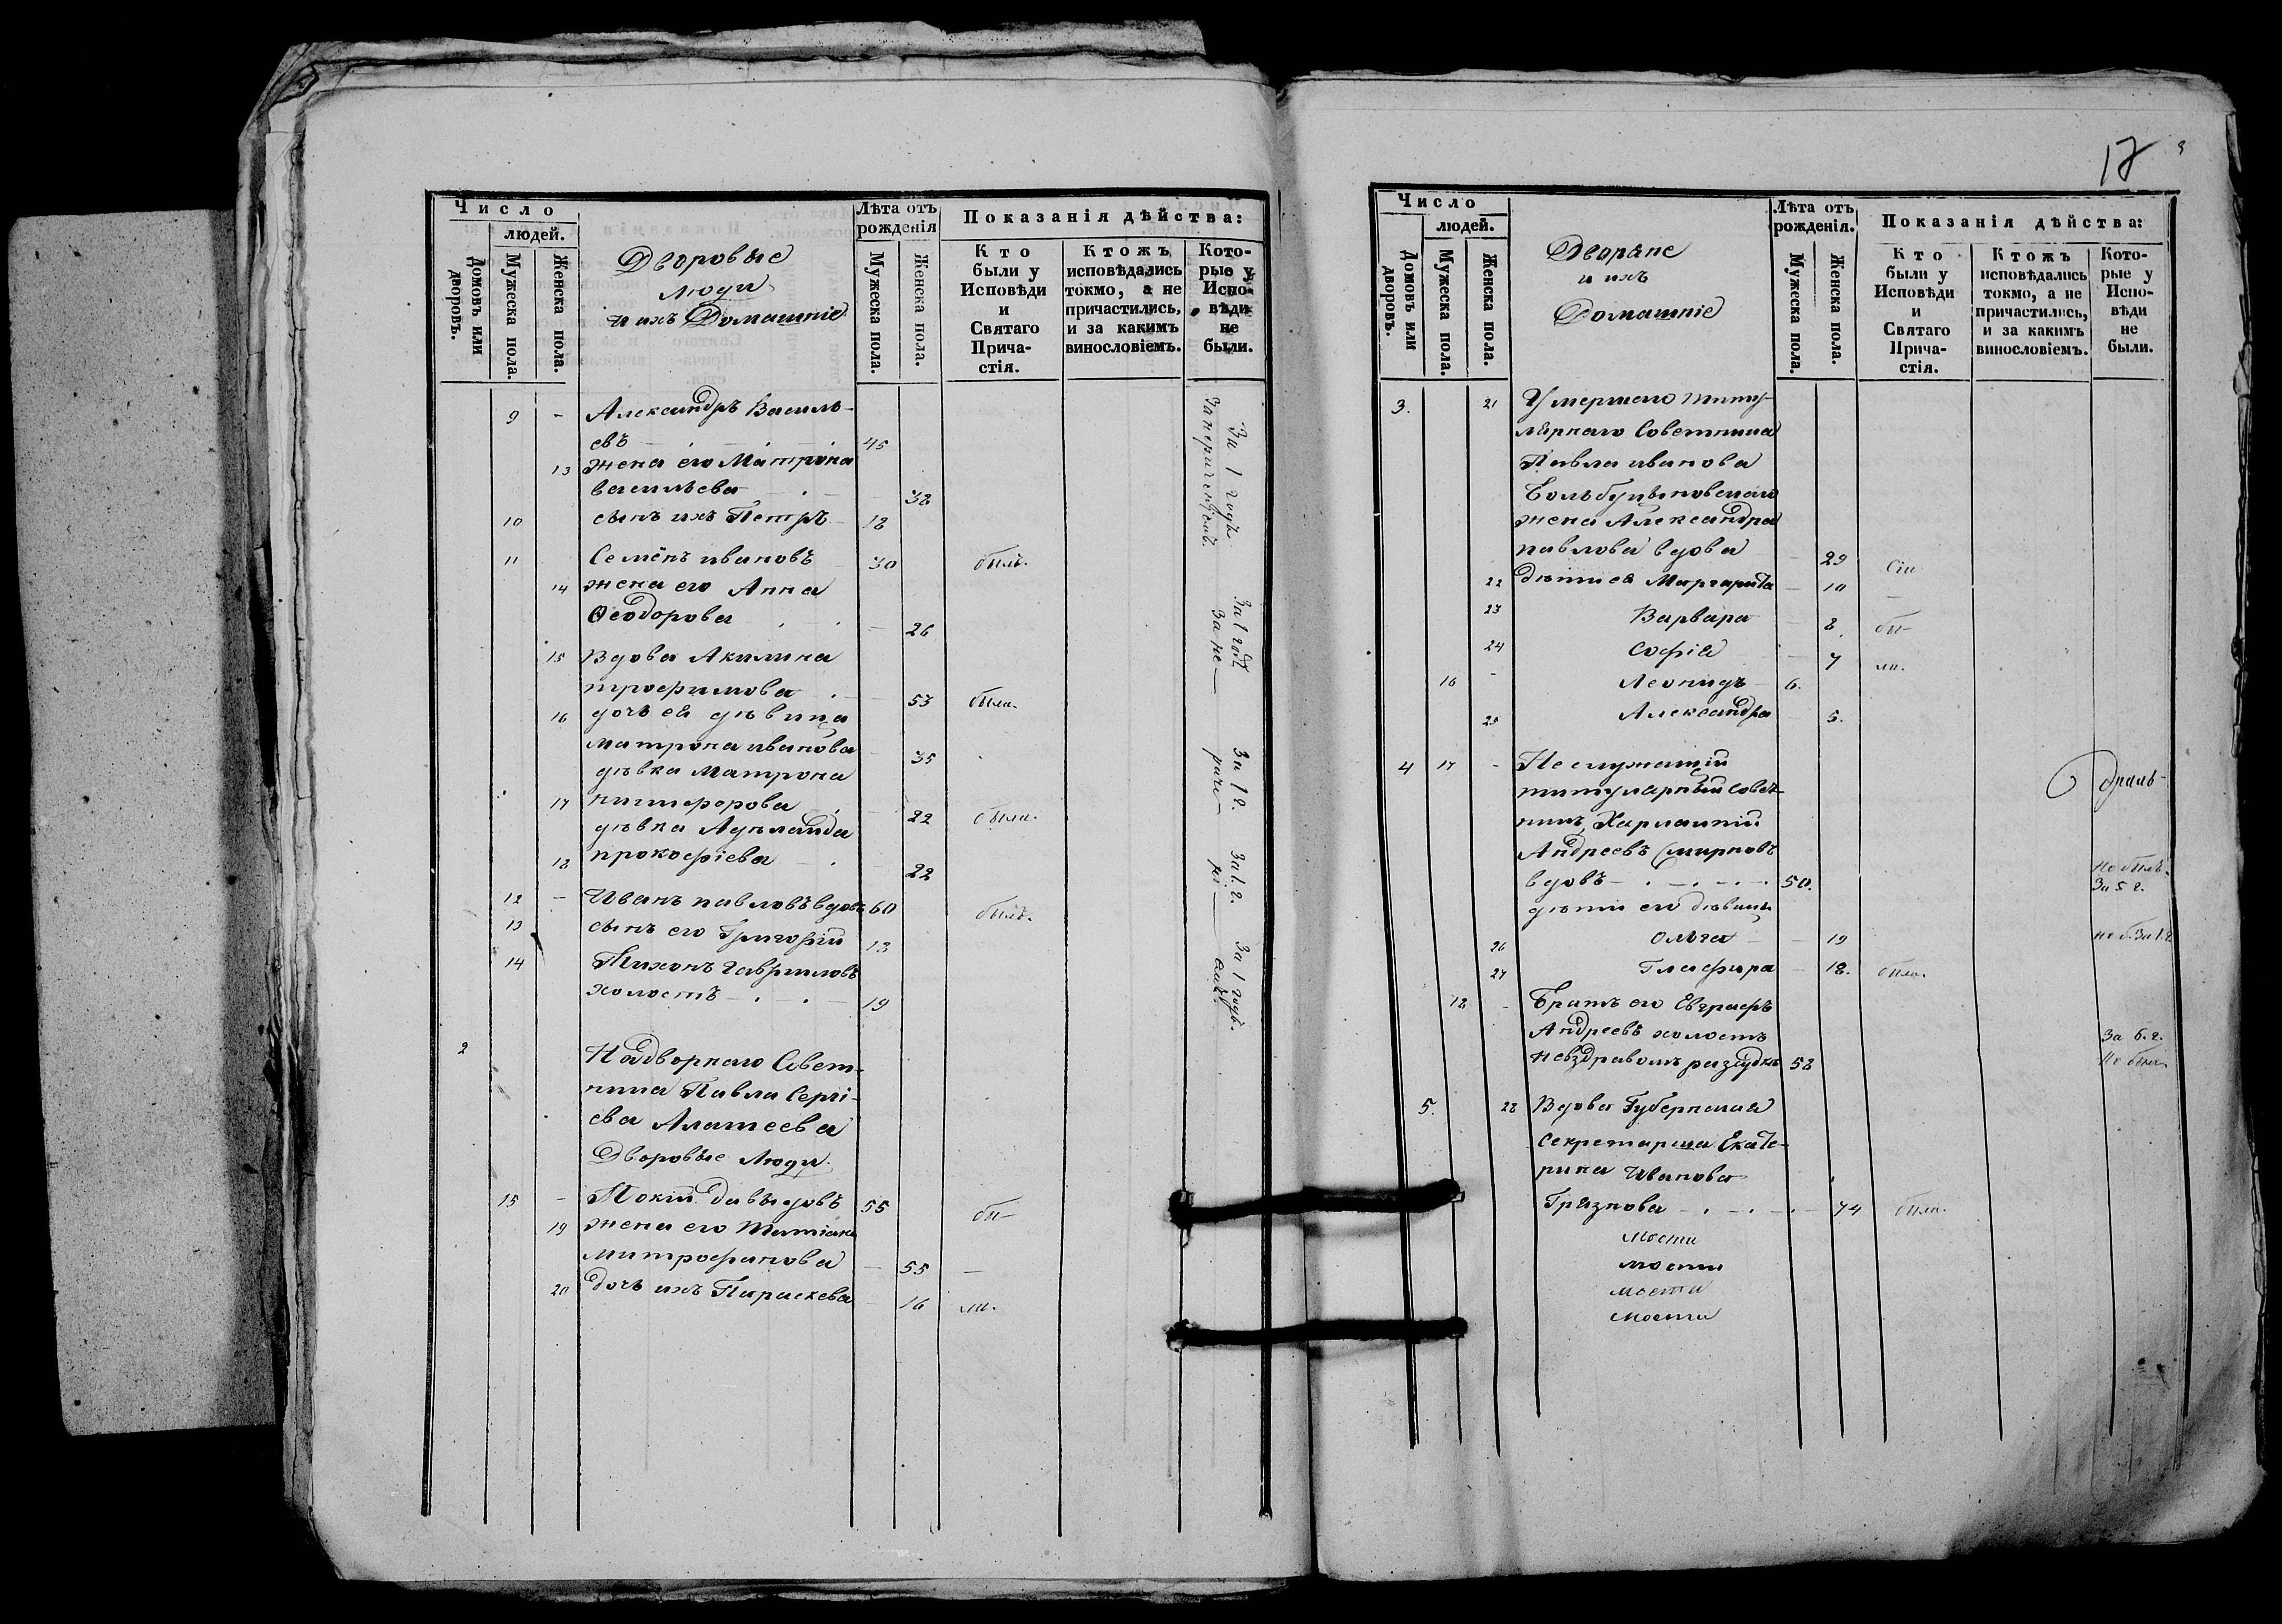 Число
людей.
Домовъ или дворовъ.
Мужеска пола.
Женска пола.
Дворовые
люди
и ихъ Домашніе
Лѣта отъ рожденія
Мужеска пола.
Женска пола.
Показанія дѣйства:
Кто были у Исповѣди и Святаго Прича-стія.
Ктожъ исповѣдались токмо, а не причастились, и за какимъ винословіемъ.
Кото-рые у Испо-вѣди не были.
9 - Александръ Василь-
евъ 45
13 жена его Матрона
васильева 38
10 сынъ ихъ Петръ 18
11 Семёнъ ивановъ 30 былъ.
14 жена его Анна
Ѳеодорова 26
15 Вдова Акилина
трофимова 53 была.
16 дочь ея дѣвица
матрона иванова 35
дѣвка Матрона
17 никифорова 22 была.
дѣвка Аделаида
18 прокофіева 22
12 - Иванъ павловъ вдовъ 60 былъ.
13 сынъ его Григорій 13
14 Тихонъ гавриловъ
холостъ 19
За 1 годъ За 1 годъ За 1 г. За 1. г. За 1 годъ.
2 Надворнаго Совет-
ника Павла Сергі-
ева Алатеева
Дворовые Люди.
15 - Токій давыдовъ 55 бы-
19 жена его Татіана
митрофанова 55 -
20 дочь ихъ Параскева 16 ли.
17
Число
людей.
Домовъ или дворовъ.
Мужеска пола.
Женска пола.
Дворяне
и ихъ
Домашніе
Лѣта отъ рожденія.
Мужеска пола.
Женска пола.
Показанія дѣйства:
Кто были у Исповѣди и Святаго Прича-стія.
Ктожъ исповѣдались токмо, а не причастились, и за какимъ винословіемъ.
Кото-рые у Испо-вѣди не были.
3. 21 Умершаго титу-
лярнаго Советника
Павла иванова
жена Александра
павлова вдова 29 Сіи
22 дѣти ея Маргарита 10 -
23 Варвара 8. бы-
24 Софія 7 ли.
16 - Леонидъ 6.
25 Александра 5.
4 17 - Неслужащій
титулярный совѣт-
никъ, Харлампій
Андреевъ Смирновъ
вдовъ 50. не былъ. За 5 г.
дѣти его дѣвицы
26 Ольга 19 не б. За 1. г.
27 Глафира 18. была.
18 - Братъ его Евграфъ
Андреевъ холостъ За 6. г.
нездравомъ разсудкѣ 58 Не былъ.
5. 28 Вдова Губернская
секретарша Екате-
рина Иванова
Грязнова 74 была.